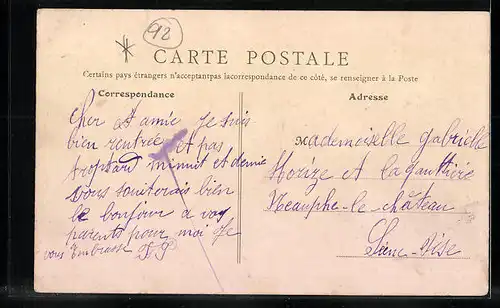 92
CARTE POSTALE
Certains pays étrangers n'acceptantpas lacorrespondance de ce côté, se renseigner à la Poste
Correspondance
Adresse
Cher et amie Je suis
bien rentrée et pas
trop tard minuit et demie
vous souiterais bien
le bonjour a vos
parents pour moi Je
vous Embrasse
Mademoiselle Gabrielle
Morize et lagauttière
Neauphe-le-château
Seine-Oise